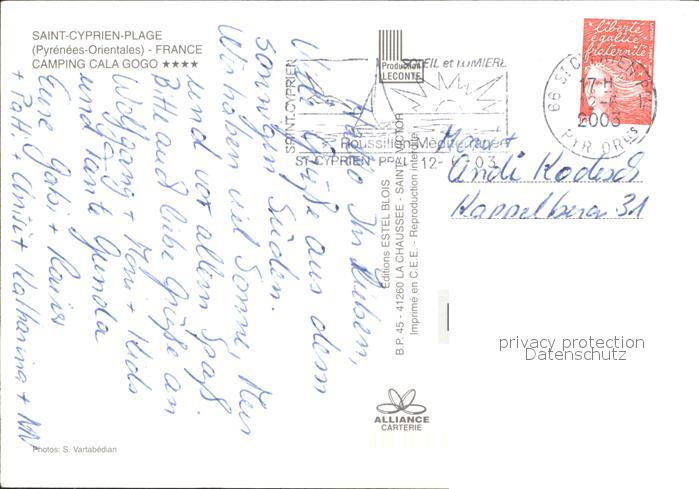 SAINT-CYPRIEN-PLAGE
(Pyrénées-Orientales) - FRANCE
CAMPING CALA GOGO ★★★★
Hallo Ihr Lieben,
viele Grüße aus dem
sonnigen Süden.
Wir haben viel Sonne, Meer
und vor allem Spaß.
Bitte auch liebe Grüße an
Wolfgang + Moni + Kids
und Tante Gerda
Eure Gabi + Rainer
+ Patti + Christ + Katharina +
Photos: S. Vartabédian
SAINT-CYPRIEN
Production
LECONTE
SOLEIL et LUMIERE
Roussillon Méditerranée
ST-CYPRIEN PPAL 12- 6 03
Editions ESTEL BLOIS
B.P. 45 - 41260 LA CHAUSSÉE - SAINT-VICTOR
Imprimé en C.E.E. - Reproduction interdite
ALLIANCE
CARTERIE
liberté
égalité
fraternité
66 ST CYPRIEN PPAL
17 H
12-6
2003
PYR ORles
Andi Kodisch
Kappelberg 31
privacy protection
Datenschutz